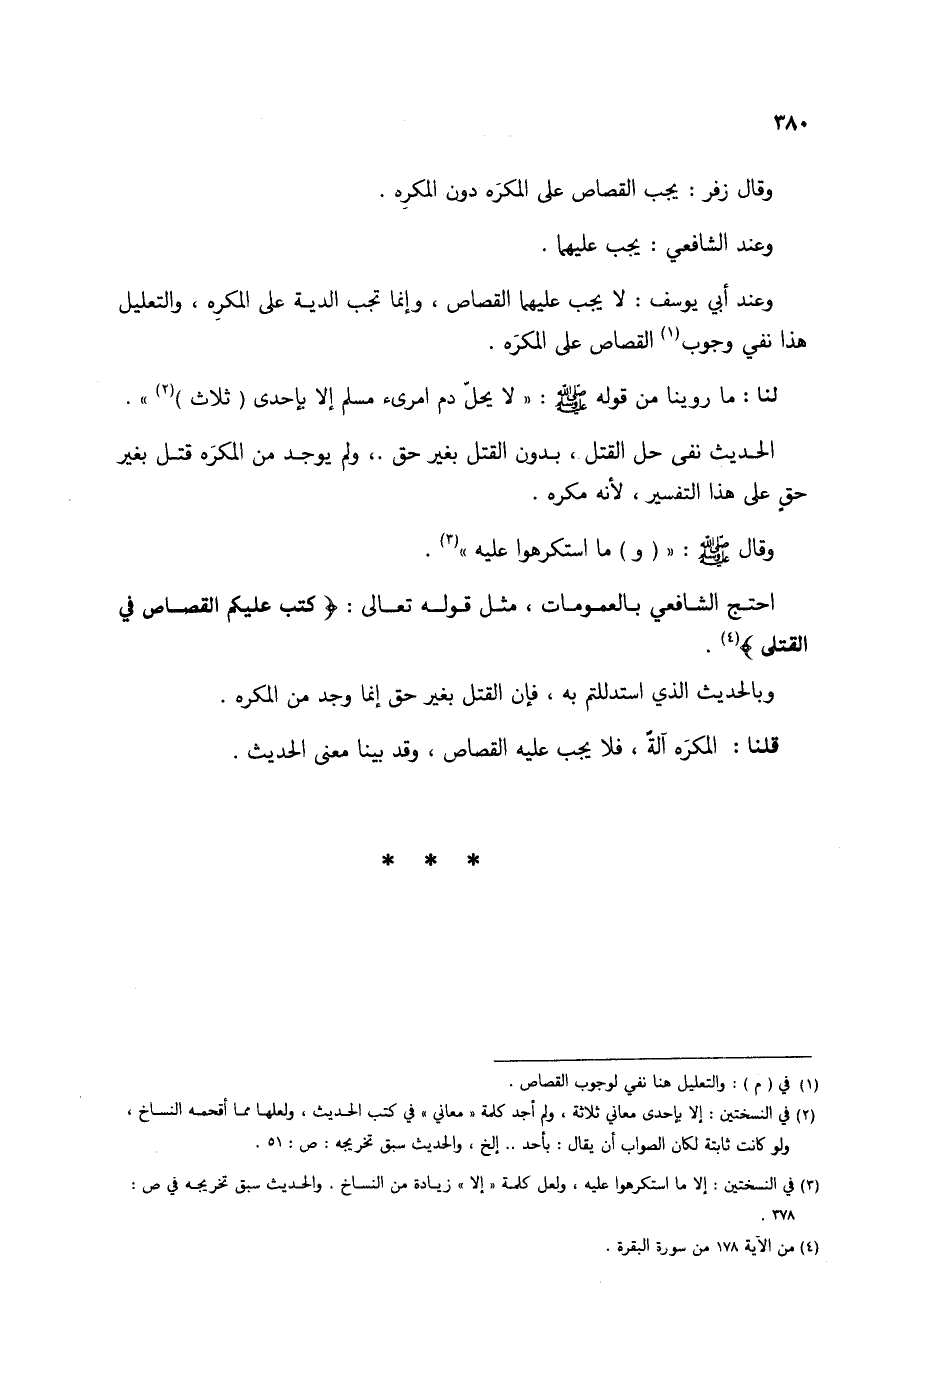 ٣٨٠
وقال زفر : يجب القصاص على المكرَه دون المكرِه .
وعند الشافعي : يجب عليهما .
وعند أبي يوسف : لا يجب عليهما القصاص ، وإنما تجب الديـة على المكرِه ، والتعليل
هذا نفي وجوب(١) القصاص على المكرَه .
لنا : ما روينا من قوله ﷺ : « لا يحلّ دم امرىء مسلم إلا بإحدى ( ثلاث )(٢) » .
الحـديث نفى حل القتل ، بـدون القتل بغير حق .، ولم يوجـد من المكرَه قتـل بغير
حقٍ على هذا التفسير ، لأنه مكره .
وقال ﷺ : « ( و ) ما استكرهوا عليه »(٣) .
احتـج الشـافعي بـالعمـومـات ، مثـل قـولـه تعـالى : ﴿ كتب عليكم القصـاص في
القتلى ﴾(٤) .
وبالحديث الذي استدللتم به ، فإن القتل بغير حق إنما وجد من المكره .
قلنا : المكرَه آلةٌ ، فلا يجب عليه القصاص ، وقد بينا معنى الحديث .
* * *
(١) في ( م ) : والتعليل هنا نفي لوجوب القصاص .
(٢) في النسختين : إلا بإحدى معاني ثلاثة ، ولم أجد كلمة « معاني » في كتب الحـديث ، ولعلهـا ممـا أقحمـه النسـاخ ،
ولو كانت ثابتة لكان الصواب أن يقال : بأحد .. إلخ ، والحديث سبق تخريجه : ص : ٥١ .
(٣) في النسختين : إلا ما استكرهوا عليه ، ولعل كلمـة « إلا » زيـادة من النسـاخ . والحـديث سبق تخريجـه في ص :
٣٧٨ .
(٤) من الآية ١٧٨ من سورة البقرة .